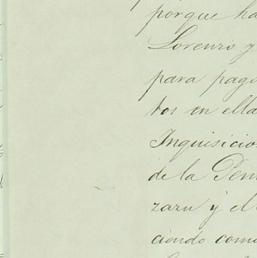 porque ha
Lorenzo y
para pago
tos en ella
Inquisicio
de la Pen
zaru y el
ciendo com